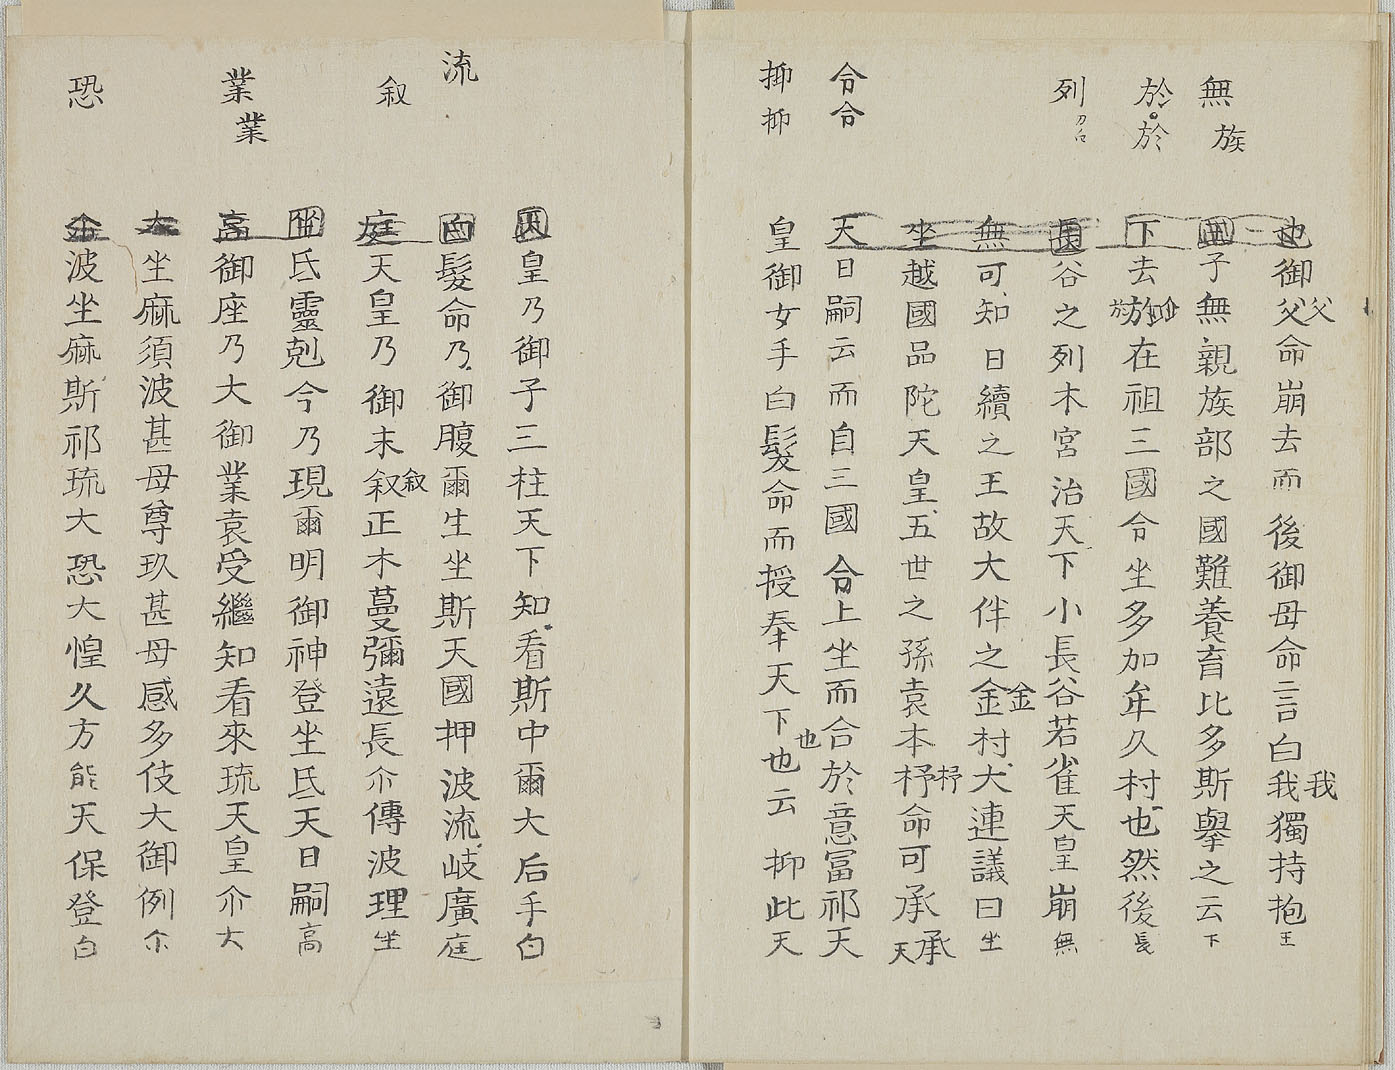 無族
於於
列
令令
抑抑
也御父命崩去而後御母命言白我獨持抱王
子無親族部之國難養育比多斯擧之云下
下去於在祖三國令坐多加牟久村也然後長
谷之列木宮治天下小長谷若雀天皇崩無
無可知日續之王故大伴之金村大連議曰坐
坐越國品陀天皇五世之孫袁本杼命可承天
天日嗣云而自三國令上坐而合於意富祁天
皇御女手白髮命而授奉天下也云抑此天
流
叙
業業
恐
皇乃御子三柱天下知看斯中爾大后手白
白髮命乃御腹爾生坐斯天國押波流岐廣庭
庭天皇乃御末叙正木蔓彌遠長尒傳波理坐
坐氐靈剋今乃現爾明御神登坐氐天日嗣高
高御座乃大御業袁受繼知看來琉天皇尒大
大坐麻須波甚母尊玖甚母感多伎大御例尒
波坐麻斯祁琉大恐大惶久方能天保登白